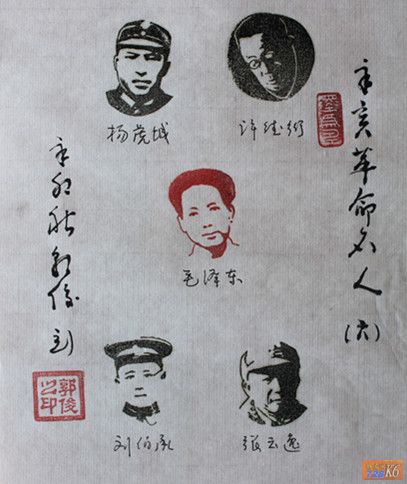 辛亥革命名人(六)
杨虎城
许德珩
毛泽东
刘伯承
张云逸
辛卯秋
刻
郭俊之印
K6